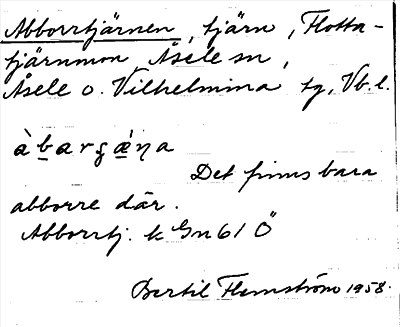 Abborrtjärnen, tjärn, Flotta-
tjärnmon, Åsele sn,
Åsele o. Vilhelmina tg, Vb. l.
àbargǽŋa
Det finns bara
abborre där.
Abborrtj. k Gn 61 Ö
Bertil Flemström 1958.